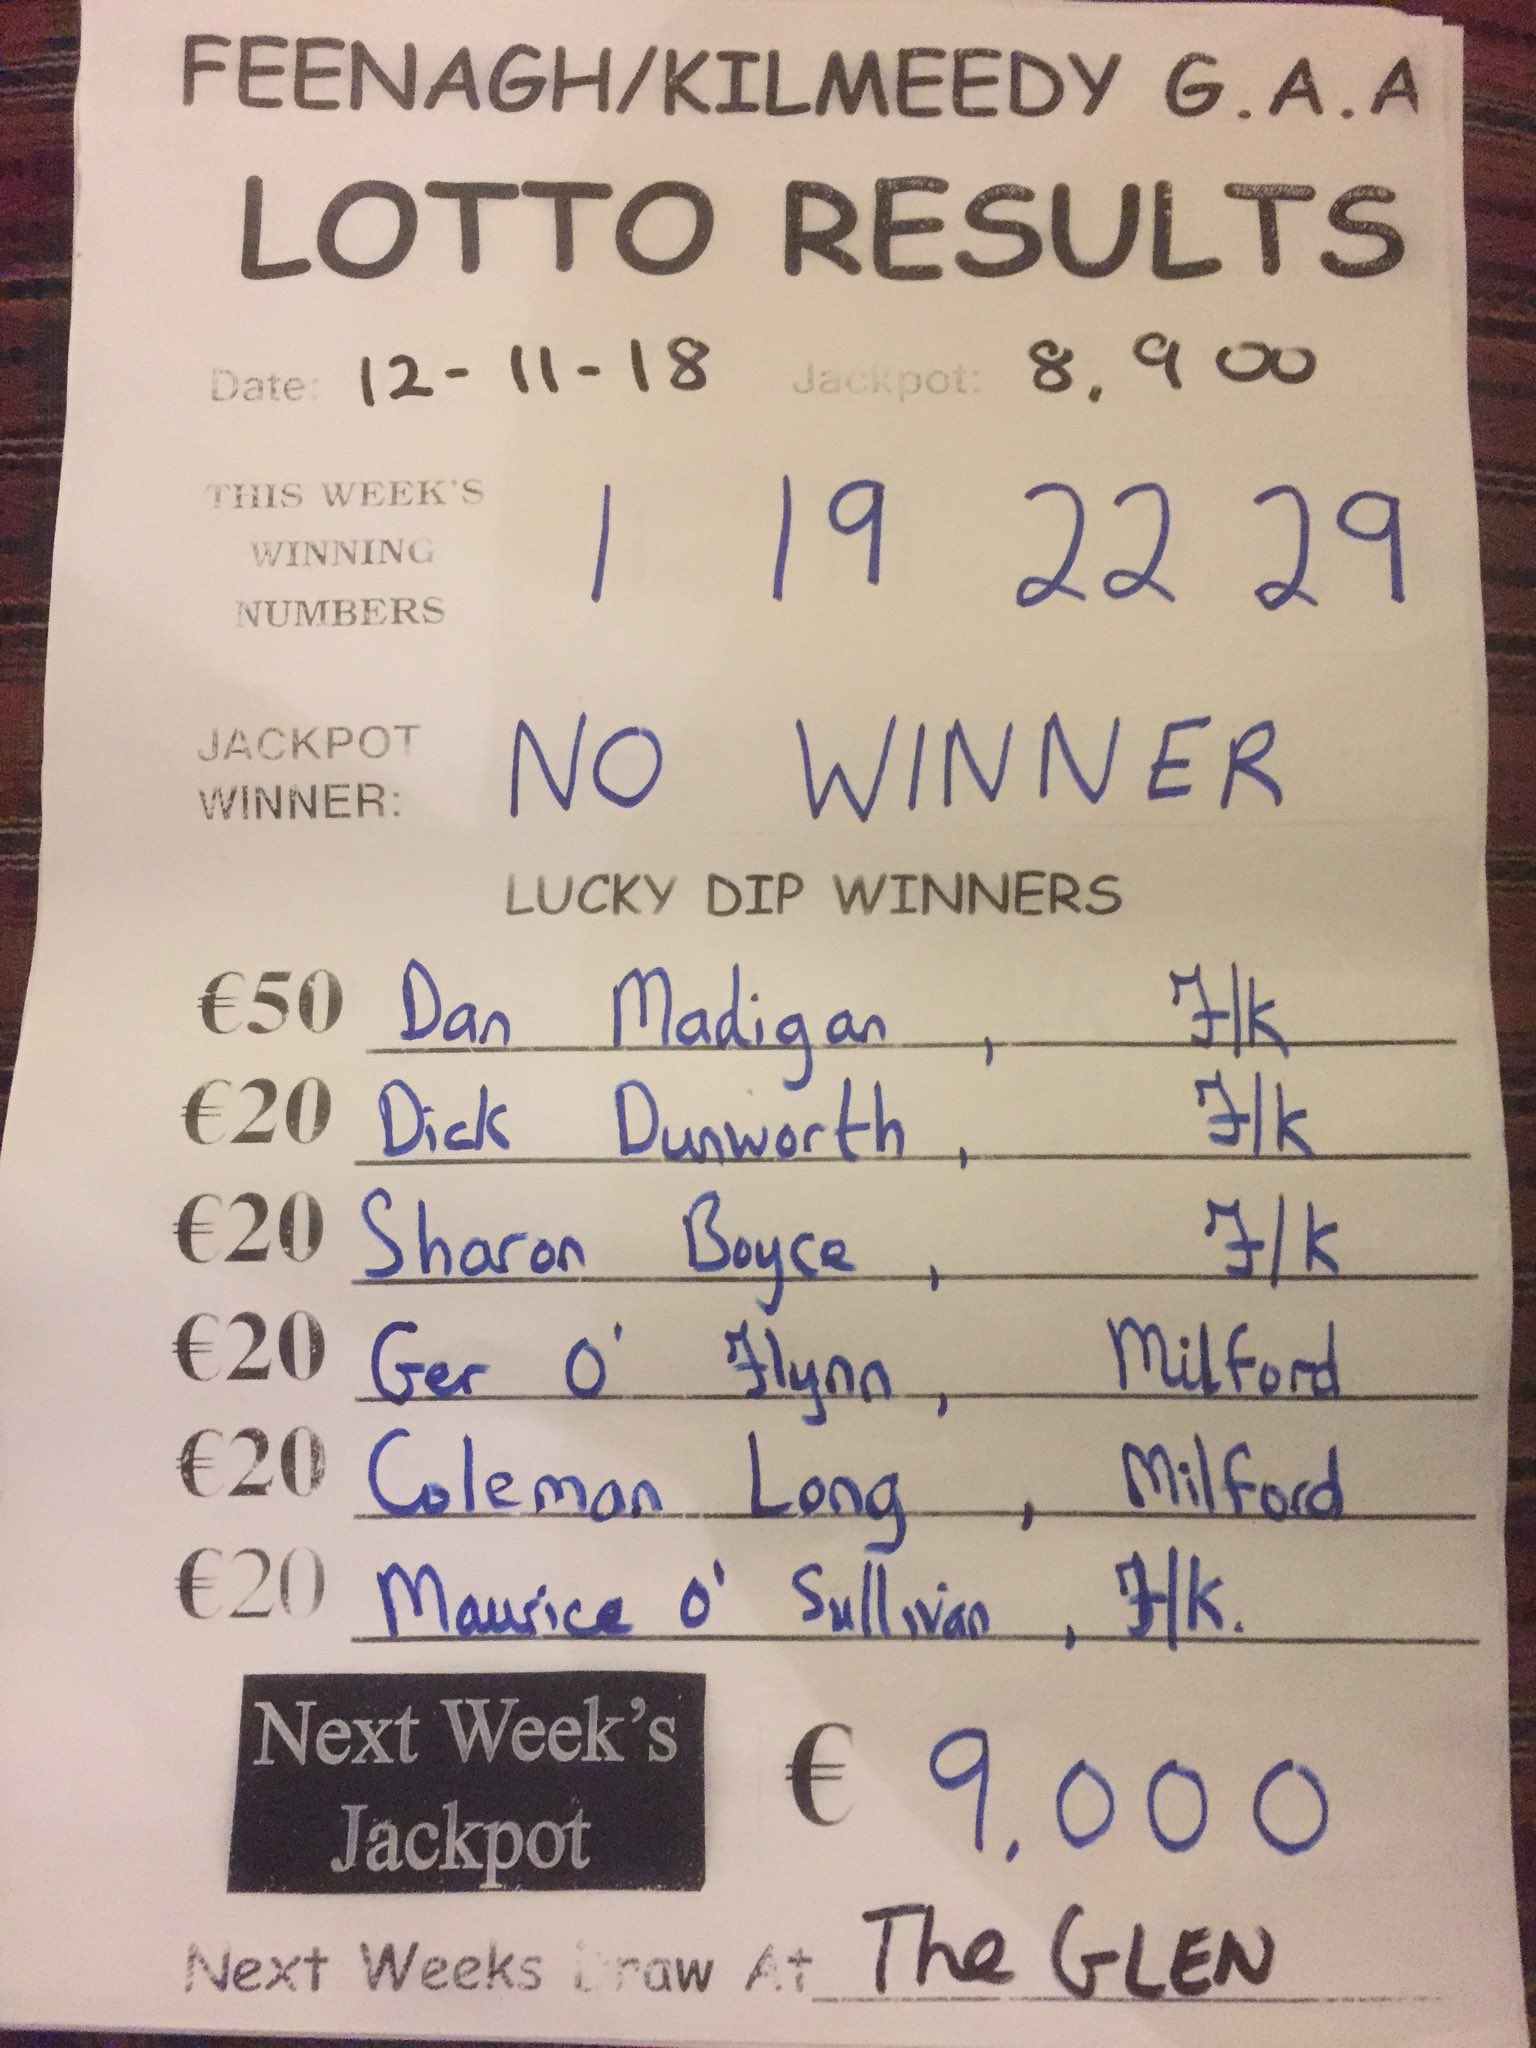 FEENAGH/KILMEEDY G.A.A
LOTTO RESULTS
Date: 12-11-18 Jackpot: 8,900
THIS WEEK'S
WINNING
NUMBERS
1 19 22 29
JACKPOT
WINNER:
NO WINNER
LUCKY DIP WINNERS
€50 Dan Madigan, F/K
€20 Dick Dunworth, F/K
€20 Sharon Boyce, F/K
€20 Ger O' Flynn, Milford
€20 Coleman Long, Milford
€20 Maurice O' Sullivan, F/K.
Next Week's
Jackpot
€ 9,000
Next Weeks Draw At The GLEN